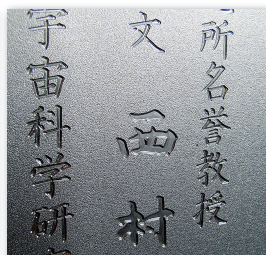 所名誉教授
文 西村
宇宙科学研